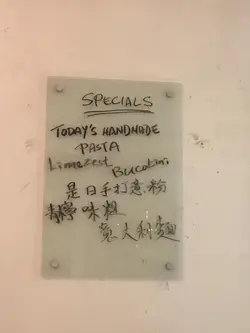 SPECIALS
TODAY'S HANDMADE
PASTA
Limezest
Bucatini
是日手打意粉
青檸味粗
意大利麵